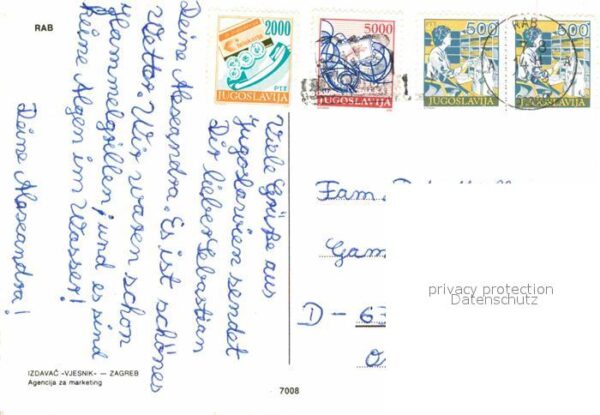 RAB
2000
PTT
JUGOSLAVIJA
5000
JUGOSLAVIJA
PTT 500
JUGOSLAVIJA
500
JUGOSLAVIJA
RAB
Viele Grüße aus
Jugoslawien sendet
Dir lieber Sebastian
Deine Alexandra. Es ist schönes
Wetter. Wir waren schon
Hammelgrillen, und es sind
keine Algen im Wasser!
Deine Alexandra!
Fam.
Gam
D - 63
privacy protection
Datenschutz
IZDAVAČ «VJESNIK» — ZAGREB
Agencija za marketing
7008